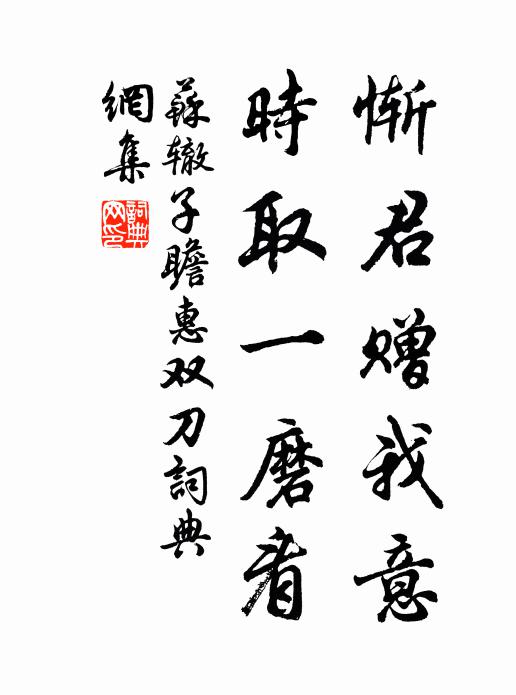 惭君赠我意
時取一磨看
蘇辙子瞻惠双刀詞典
網集
詞典網印